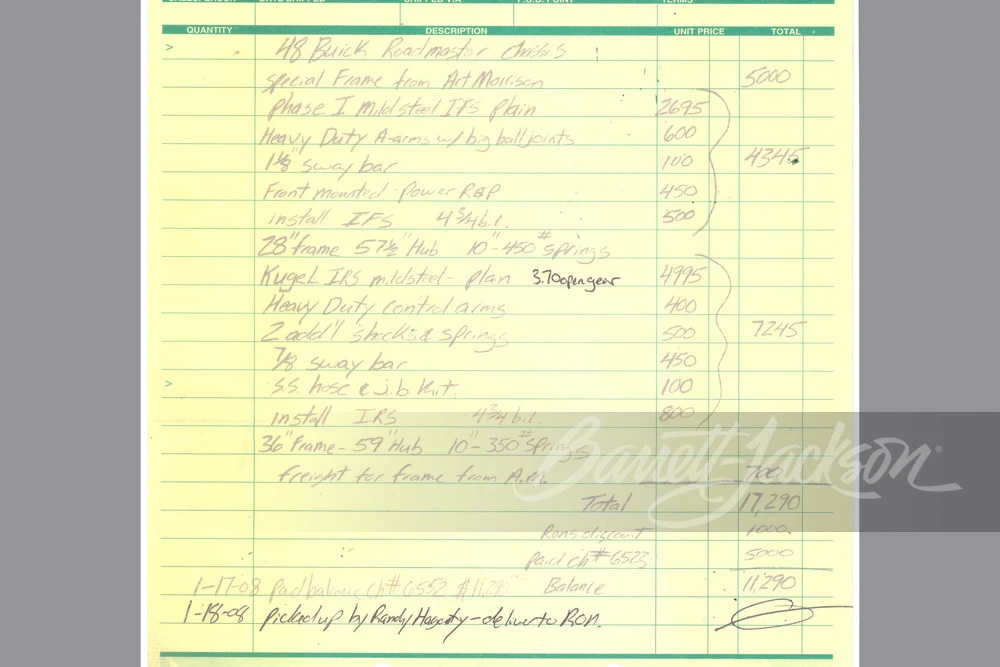 SALESPERSON DATE SHIPPED SHIPPED VIA F.O.B. POINT TERMS
QUANTITY DESCRIPTION UNIT PRICE TOTAL
> 48 Buick Roadmaster chassis
special Frame from Art Morrison 5000
phase I mildsteel IFS plain 2695
Heavy Duty A-arms w/ big balljoints 600
1⅛" sway bar 100 4345
Front mounted power R&P 450
install IFS 4 3/4 b.l. 500
28" frame 57½" Hub 10"-450# springs
Kugel IRS mildsteel - plan 3.70 open gear 4995
Heavy Duty control arms 400
2 add'l shocks & springs 500 7245
7/8 sway bar 450
> S.S. hose & j.b. kit. 100
install IRS 4 3/4 b.l. 800
36" Frame - 59" Hub 10"-350# springs
freight for frame from A.M. 700
Total 17,290
Rons discount 1000.
paid ch# 6523 5000
1-17-08 paid balance ch# 6552 Balance 11,290
1-18-08 picked up by Randy Hagerty - deliver to Ron.
Barrett-Jackson